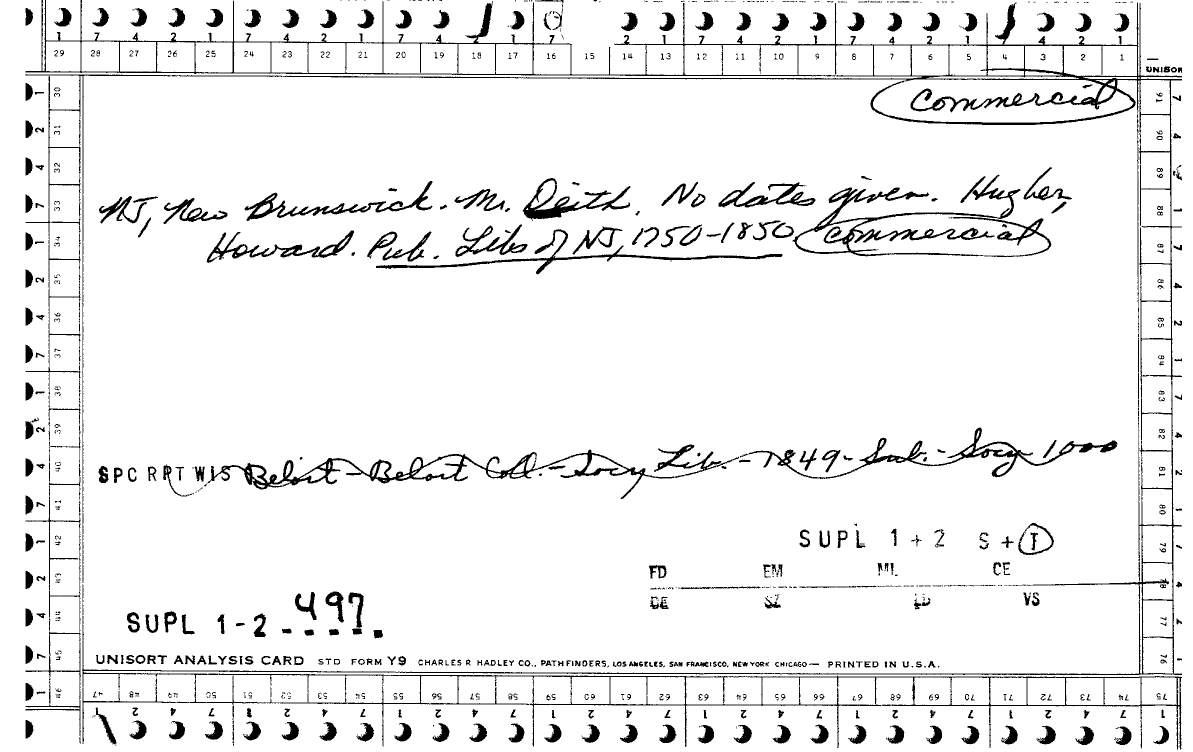 1 7 4 2 1 7 4 2 1 7 4 2 1 7 2 1 7 4 2 1 7 4 2 1 7 4 2 1
29 28 27 26 25 24 23 22 21 20 19 18 17 16 15 14 13 12 11 10 9 8 7 6 5 4 3 2 1
UNISORT
commercial
NJ, New Brunswick. Mr. Deith. No dates given. Hughes,
Howard. Pub. Libs of NJ, 1750-1850. commercial
SPC RPT WIS Beloit - Beloit Coll. - Socy Lib. - 1849 - Sub. - Socy 1000
SUPL 1+2 S+I
FD EM ML CE
DE SZ LD VS
SUPL 1-2 - 497
UNISORT ANALYSIS CARD STD FORM Y9 CHARLES R HADLEY CO., PATHFINDERS, LOS ANGELES, SAN FRANCISCO, NEW YORK CHICAGO — PRINTED IN U.S.A.
47 48 49 50 51 52 53 54 55 56 57 58 59 60 61 62 63 64 65 66 67 68 69 70 71 72 73 74 75
1 2 4 7 1 2 4 7 1 2 4 7 1 2 4 7 1 2 4 7 1 2 4 7 1 2 4 7 1